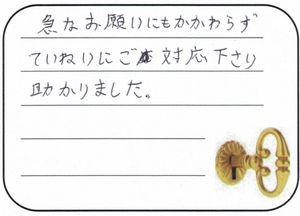 急なお願いにもかかわらず
ていねいにご対応下さり
助かりました。